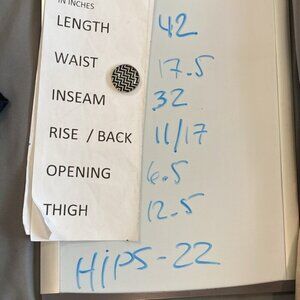 IN INCHES
LENGTH 42
WAIST 17.5
INSEAM 32
RISE / BACK 11/17
OPENING 6.5
THIGH 12.5
HiPS-22